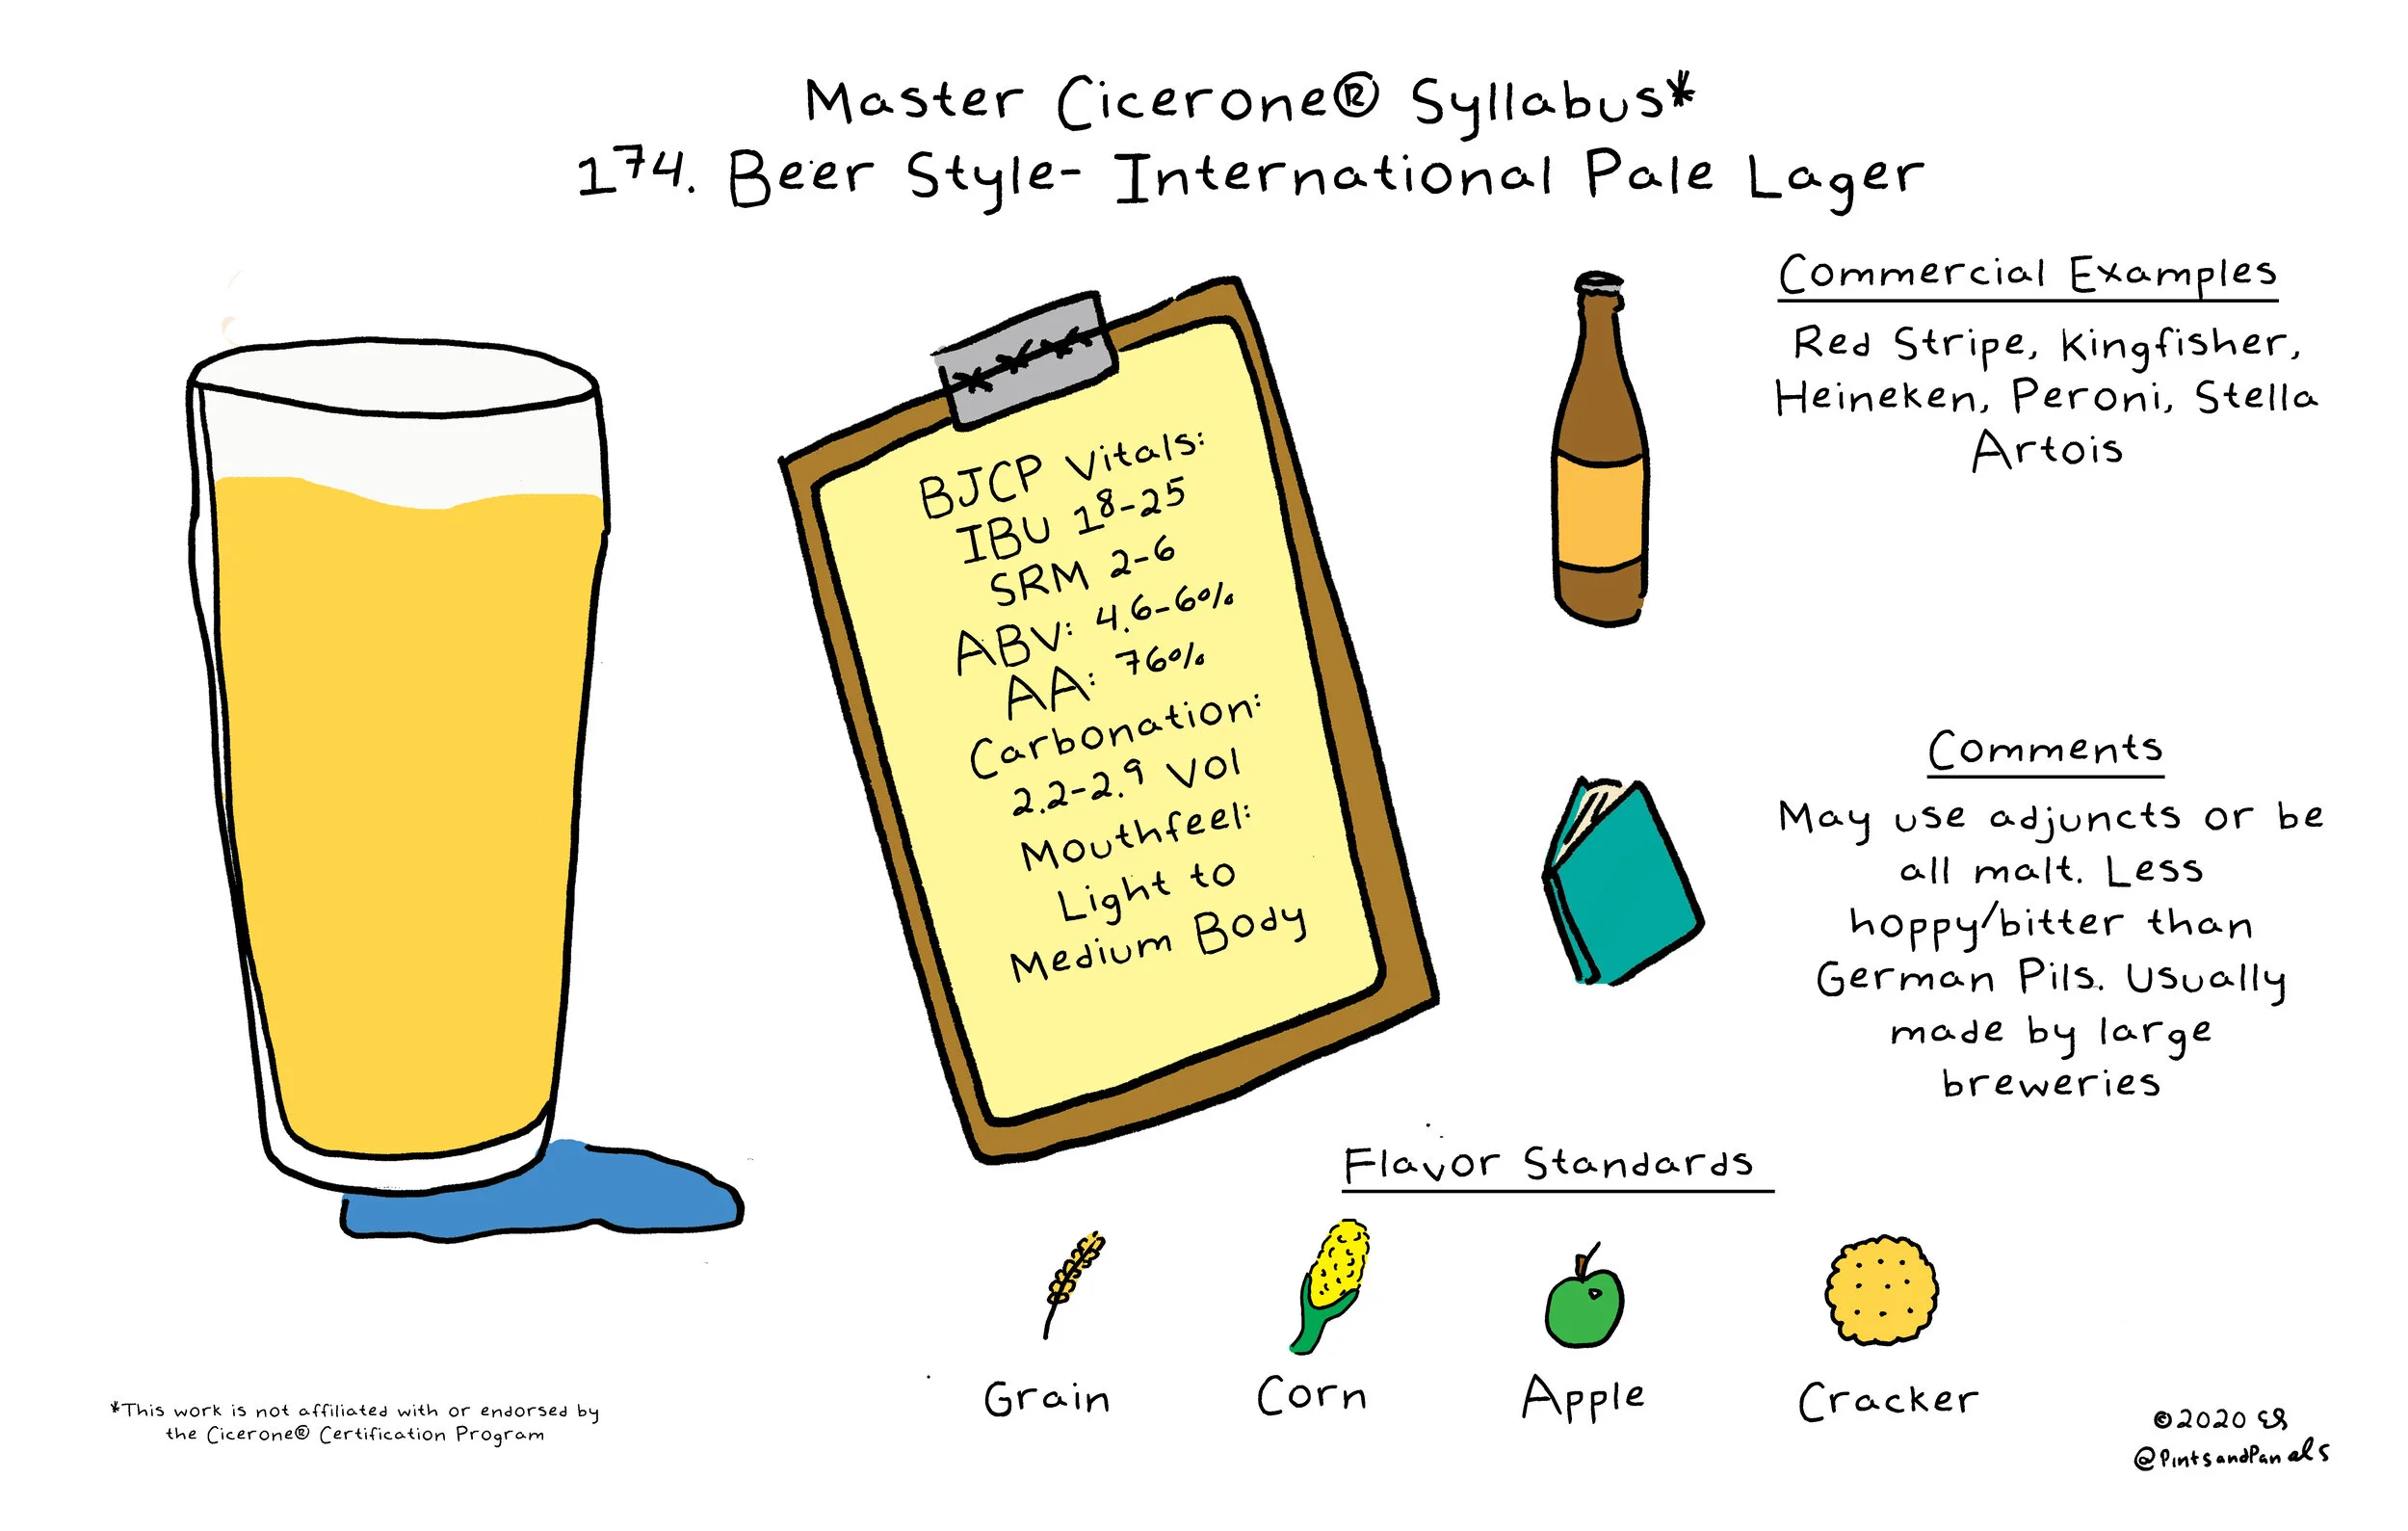 Master Cicerone® Syllabus*
174. Beer Style- International Pale Lager
BJCP Vitals:
IBU 18-25
SRM 2-6
ABV: 4.6-6%
AA: 76%
Carbonation:
2.2-2.9 Vol
Mouthfeel:
Light to
Medium Body
Commercial Examples
Red Stripe, Kingfisher,
Heineken, Peroni, Stella
Artois
Comments
May use adjuncts or be
all malt. Less
hoppy/bitter than
German Pils. Usually
made by large
breweries
Flavor Standards
Grain
Corn
Apple
Cracker
*This work is not affiliated with or endorsed by
the Cicerone® Certification Program
©2020 ES
@PintsandPanels